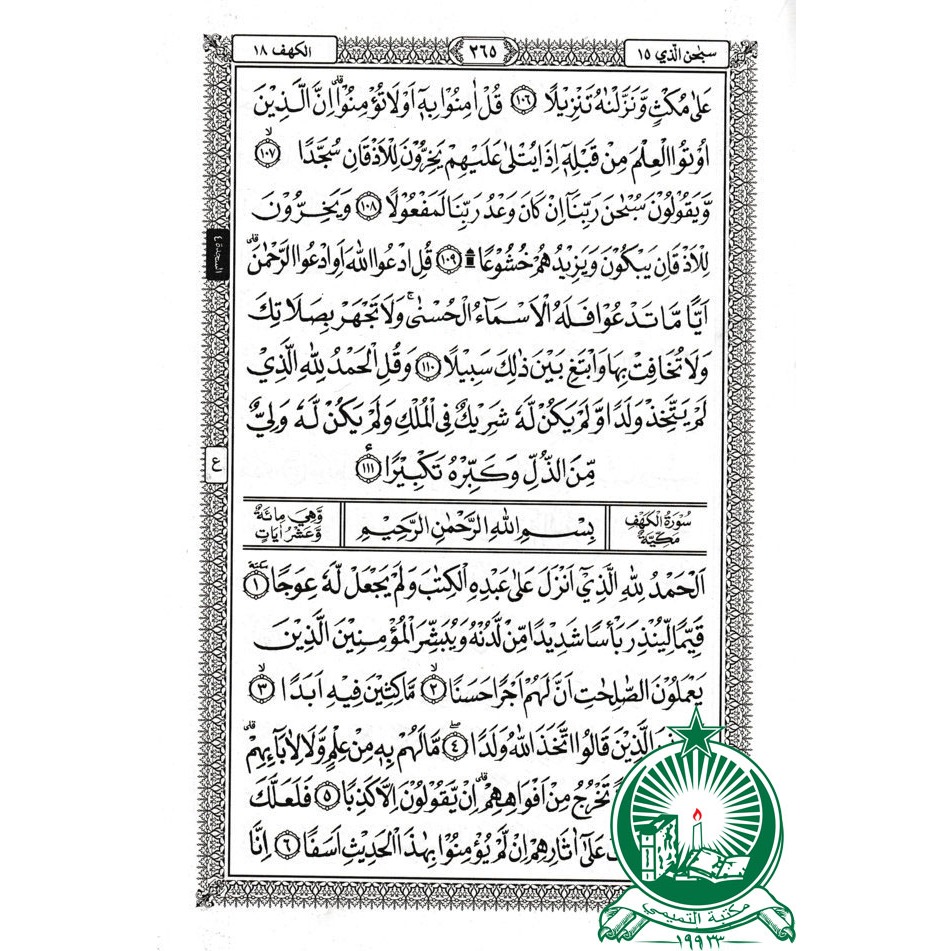 سبحن الذي ١٥
٢٦٥
الكهف ١٨
عَلٰى مُكْثٍ وَّنَزَّلْنٰهُ تَنْزِيْلًا ١٠٦ قُلْ اٰمِنُوْا بِهٖٓ اَوْ لَا تُؤْمِنُوْاؕ اِنَّ الَّذِيْنَ
اُوْتُوا الْعِلْمَ مِنْ قَبْلِهٖٓ اِذَا يُتْلٰى عَلَيْهِمْ يَخِرُّوْنَ لِلْاَذْقَانِ سُجَّدًا ١٠٧
وَّيَقُوْلُوْنَ سُبْحٰنَ رَبِّنَآ اِنْ كَانَ وَعْدُ رَبِّنَا لَمَفْعُوْلًا ١٠٨ وَيَخِرُّوْنَ
لِلْاَذْقَانِ يَبْكُوْنَ وَيَزِيْدُهُمْ خُشُوْعًا ۩ ١٠٩ قُلِ ادْعُوا اللّٰهَ اَوِ ادْعُوا الرَّحْمٰنَ ۗ
السجدة ٤
اَيًّا مَّا تَدْعُوْا فَلَهُ الْاَسْمَآءُ الْحُسْنٰى ۚ وَلَا تَجْهَرْ بِصَلَاتِكَ
وَلَا تُخَافِتْ بِهَا وَابْتَغِ بَيْنَ ذٰلِكَ سَبِيْلًا ١١٠ وَقُلِ الْحَمْدُ لِلّٰهِ الَّذِيْ
لَمْ يَتَّخِذْ وَلَدًا وَّلَمْ يَكُنْ لَّهٗ شَرِيْكٌ فِي الْمُلْكِ وَلَمْ يَكُنْ لَّهٗ وَلِيٌّ
مِّنَ الذُّلِّ وَكَبِّرْهُ تَكْبِيْرًا ١١١
ع
سُوْرَةُ الْكَهْفِ مَكِّيَّةٌ
بِسْمِ اللّٰهِ الرَّحْمٰنِ الرَّحِيْمِ
وَّهِيَ مِائَةٌ وَّعَشْرُ اٰيَاتٍ
اَلْحَمْدُ لِلّٰهِ الَّذِيْٓ اَنْزَلَ عَلٰى عَبْدِهِ الْكِتٰبَ وَلَمْ يَجْعَلْ لَّهٗ عِوَجًا ١
قَيِّمًا لِّيُنْذِرَ بَأْسًا شَدِيْدًا مِّنْ لَّدُنْهُ وَيُبَشِّرَ الْمُؤْمِنِيْنَ الَّذِيْنَ
يَعْمَلُوْنَ الصّٰلِحٰتِ اَنَّ لَهُمْ اَجْرًا حَسَنًا ٢ مَّاكِثِيْنَ فِيْهِ اَبَدًا ٣
الَّذِيْنَ قَالُوا اتَّخَذَ اللّٰهُ وَلَدًا ٤ مَّا لَهُمْ بِهٖ مِنْ عِلْمٍ وَّلَا لِاٰبَآئِهِمْ ۗ
تَخْرُجُ مِنْ اَفْوَاهِهِمْ ۗ اِنْ يَّقُوْلُوْنَ اِلَّا كَذِبًا ٥ فَلَعَلَّكَ
عَلٰٓى اٰثَارِهِمْ اِنْ لَّمْ يُؤْمِنُوْا بِهٰذَا الْحَدِيْثِ اَسَفًا ٦ اِنَّا
مكتبة التميمي
١٩٩٢٢